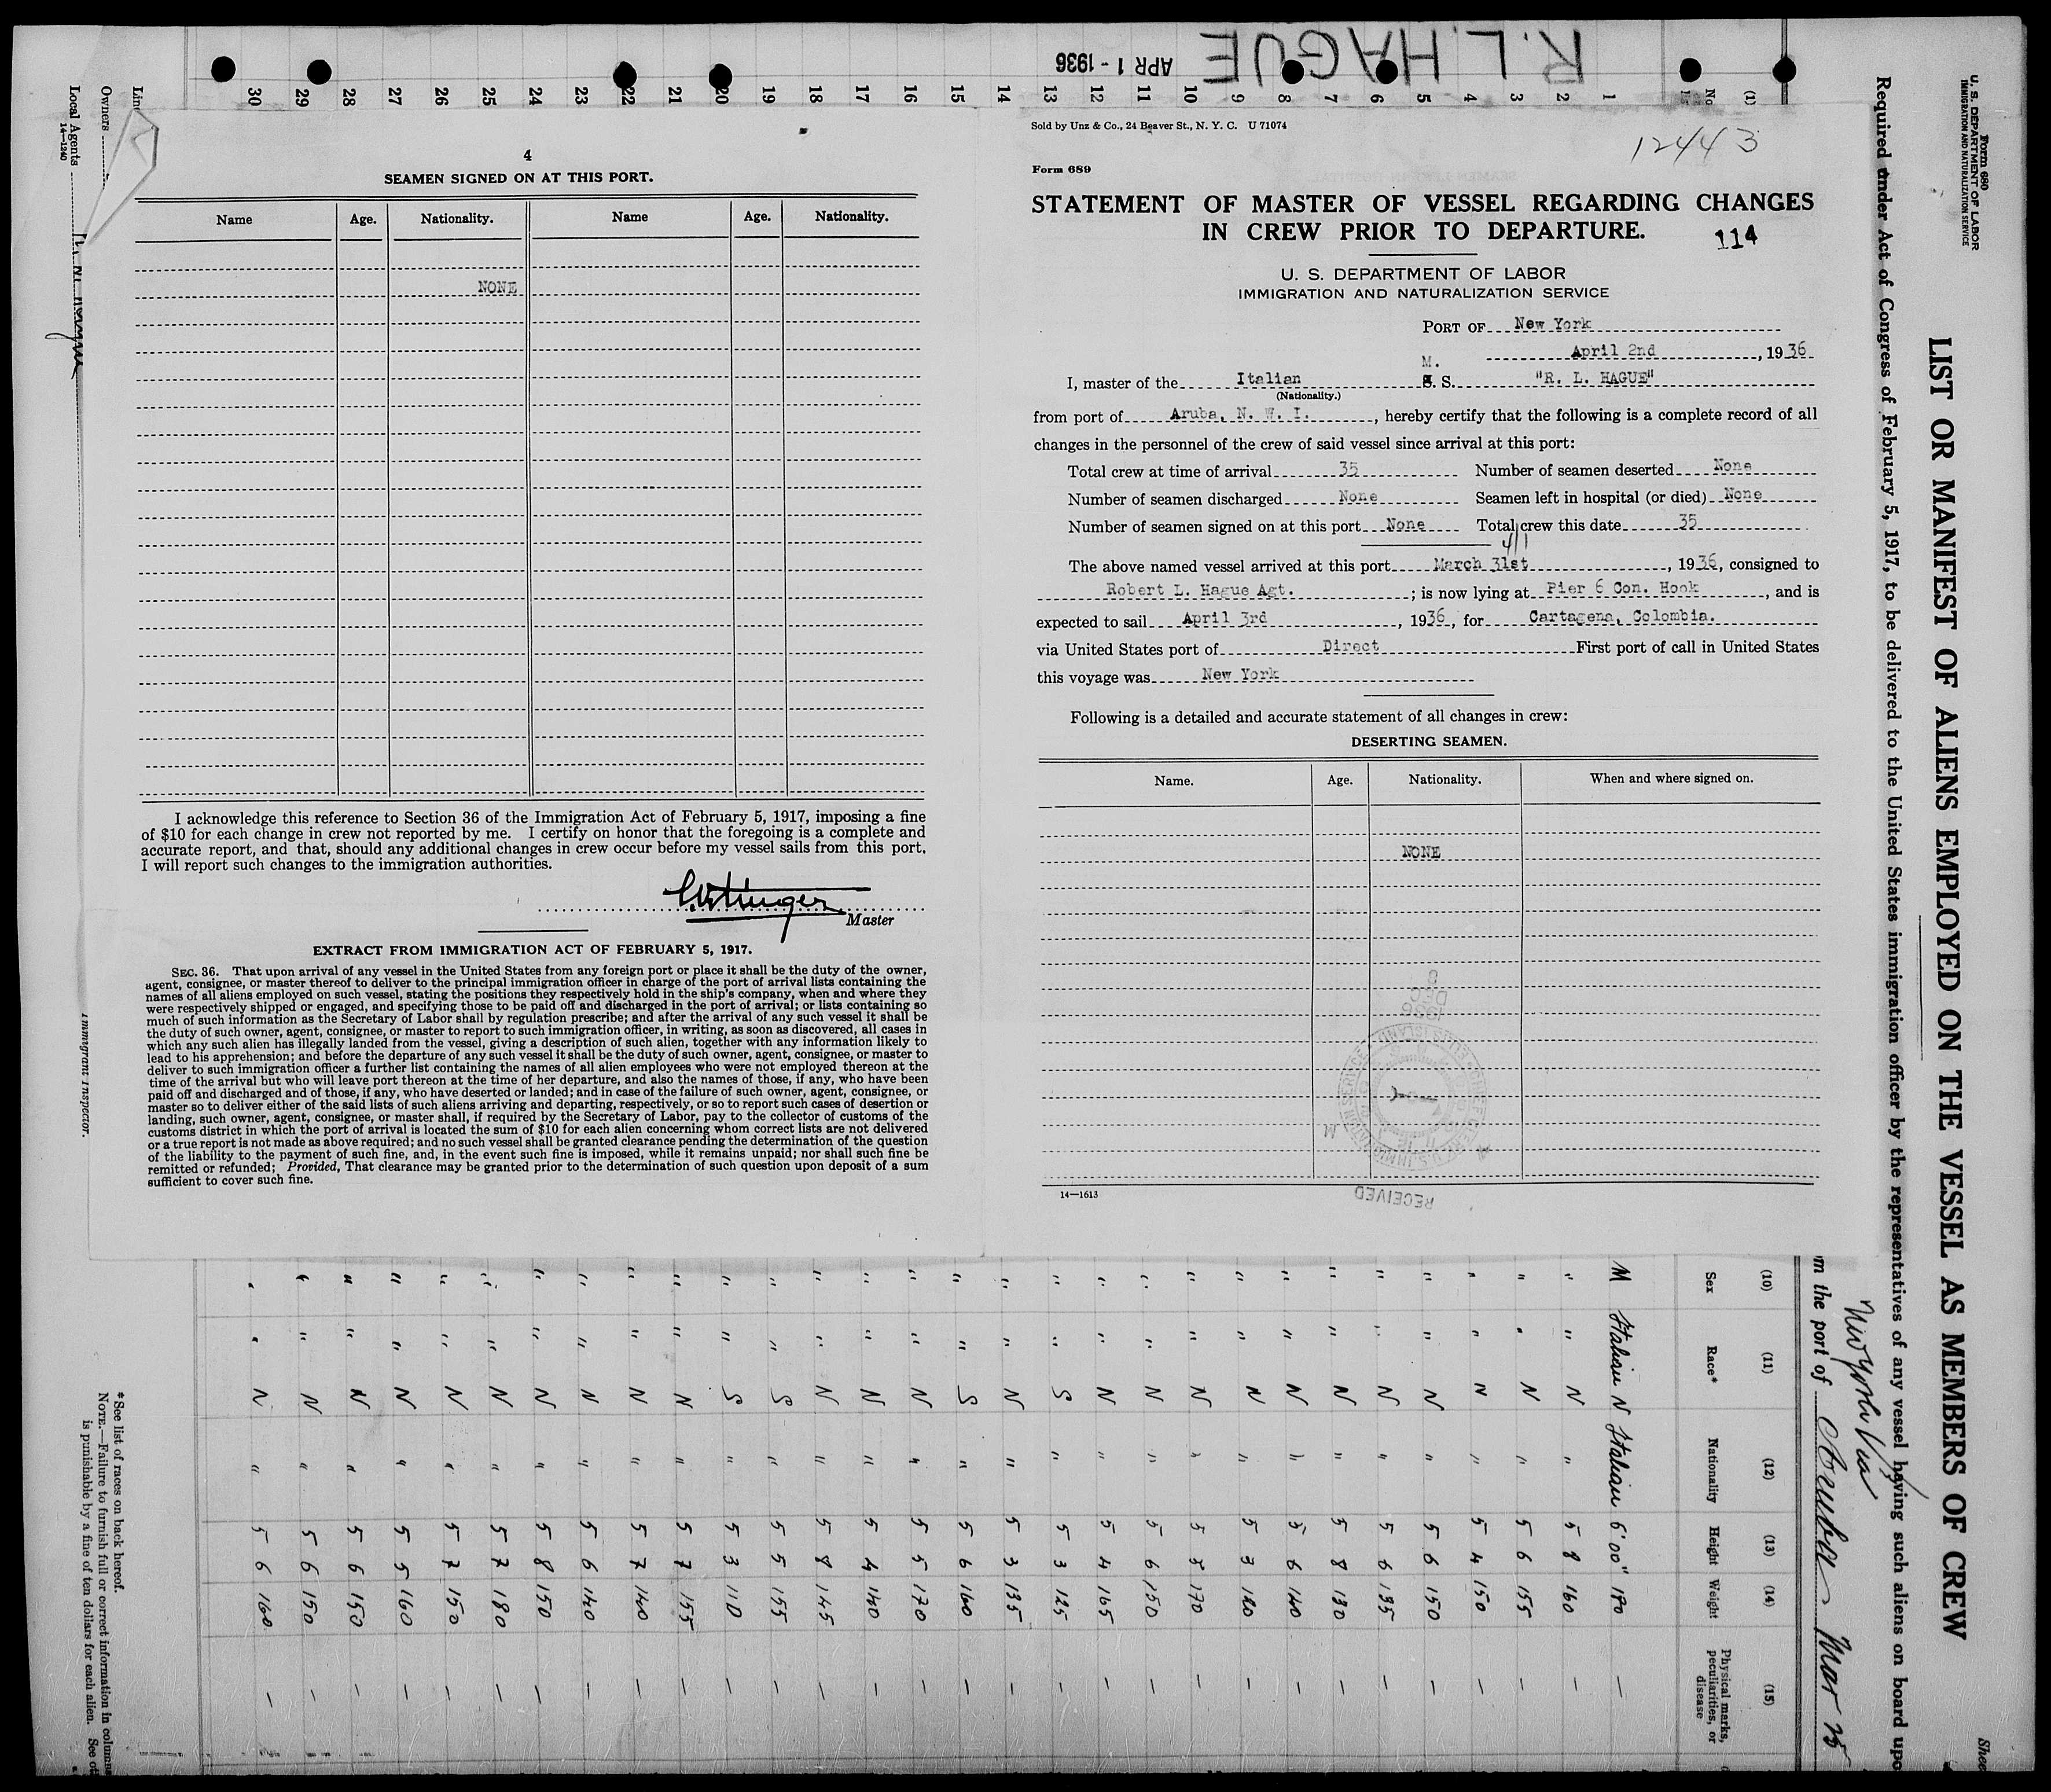 R. L. HAGUE
APR 1 - 1936
4
SEAMEN SIGNED ON AT THIS PORT.
Name Age. Nationality. Name Age. Nationality.
NONE
I acknowledge this reference to Section 36 of the Immigration Act of February 5, 1917, imposing a fine
of $10 for each change in crew not reported by me. I certify on honor that the foregoing is a complete and
accurate report, and that, should any additional changes in crew occur before my vessel sails from this port,
I will report such changes to the immigration authorities.
Master
EXTRACT FROM IMMIGRATION ACT OF FEBRUARY 5, 1917.
SEC. 36. That upon arrival of any vessel in the United States from any foreign port or place it shall be the duty of the owner,
agent, consignee, or master thereof to deliver to the principal immigration officer in charge of the port of arrival lists containing the
names of all aliens employed on such vessel, stating the positions they respectively hold in the ship's company, when and where they
were respectively shipped or engaged, and specifying those to be paid off and discharged in the port of arrival; or lists containing so
much of such information as the Secretary of Labor shall by regulation prescribe; and after the arrival of any such vessel it shall be
the duty of such owner, agent, consignee, or master to report to such immigration officer, in writing, as soon as discovered, all cases in
which any such alien has illegally landed from the vessel, giving a description of such alien, together with any information likely to
lead to his apprehension; and before the departure of any such vessel it shall be the duty of such owner, agent, consignee, or master to
deliver to such immigration officer a further list containing the names of all alien employees who were not employed thereon at the
time of the arrival but who will leave port thereon at the time of her departure, and also the names of those, if any, who have been
paid off and discharged and of those, if any, who have deserted or landed; and in case of the failure of such owner, agent, consignee, or
master so to deliver either of the said lists of such aliens arriving and departing, respectively, or so to report such cases of desertion or
landing, such owner, agent, consignee, or master shall, if required by the Secretary of Labor, pay to the collector of customs of the
customs district in which the port of arrival is located the sum of $10 for each alien concerning whom correct lists are not delivered
or a true report is not made as above required; and no such vessel shall be granted clearance pending the determination of the question
of the liability to the payment of such fine, and, in the event such fine is imposed, while it remains unpaid; nor shall such fine be
remitted or refunded; Provided, That clearance may be granted prior to the determination of such question upon deposit of a sum
sufficient to cover such fine.
Sold by Unz & Co., 24 Beaver St., N. Y. C. U 71074
12443
Form 689
STATEMENT OF MASTER OF VESSEL REGARDING CHANGES
IN CREW PRIOR TO DEPARTURE.
114
U. S. DEPARTMENT OF LABOR
IMMIGRATION AND NATURALIZATION SERVICE
PORT OF New York
April 2nd, 1936
I, master of the Italian M. S. S. "R. L. HAGUE"
(Nationality.)
from port of Aruba, N. W. I., hereby certify that the following is a complete record of all
changes in the personnel of the crew of said vessel since arrival at this port:
Total crew at time of arrival 35 Number of seamen deserted None
Number of seamen discharged None Seamen left in hospital (or died) None
Number of seamen signed on at this port None Total crew this date 35
4/1
The above named vessel arrived at this port March 31st, 1936, consigned to
Robert L. Hague Agt.; is now lying at Pier 6 Con. Hook, and is
expected to sail April 3rd, 1936, for Cartagena, Colombia.
via United States port of Direct First port of call in United States
this voyage was New York
Following is a detailed and accurate statement of all changes in crew:
DESERTING SEAMEN.
Name. Age. Nationality. When and where signed on.
NONE
14—1613
RECEIVED
Form 680
U. S. DEPARTMENT OF LABOR
IMMIGRATION AND NATURALIZATION SERVICE
LIST OR MANIFEST OF ALIENS EMPLOYED ON THE VESSEL AS MEMBERS OF CREW
Required under Act of Congress of February 5, 1917, to be delivered to the United States immigration officer by the representatives of any vessel having such aliens on board upo
m the port of
(1) (10) (11) (12) (13) (14) (15)
No Sex Race* Nationality Height Weight Physical marks, peculiarities, or disease
1 M Italian N Italian 6'00" 190 —
2 " " N " 5 8 160 —
3 " " N " 5 6 155 —
4 " " N " 5 4 150 —
5 " " N " 5 6 150 —
6 " " N " 5 6 135 —
7 " " N " 5 8 130 —
8 " " N " 5 6 140 —
9 " " N " 5 3 120 —
10 " " N " 5 5 170 —
11 " " N " 5 6 150 —
12 " " N " 5 4 165 —
13 " " S " 5 3 125 —
14 " " N " 5 3 135 —
15 " " S " 5 6 160 —
16 " " N " 5 5 170 —
17 " " N " 5 4 140 —
18 " " N " 5 8 145 —
19 " " S " 5 5 155 —
20 " " S " 5 3 110 —
21 " " N " 5 7 155 —
22 " " N " 5 7 140 —
23 " " N " 5 6 140 —
24 " " N " 5 8 150 —
25 " " N " 5 7 180 —
26 " " N " 5 7 150 —
27 " " N " 5 5 160 —
28 " " N " 5 6 150 —
29 " " N " 5 6 150 —
30 " " N " 5 6 160 —
Line
Owners
Local Agents
14—1240
Immigrant Inspector.
*See list of races on back hereof.
NOTE.—Failure to furnish full or correct information in columns
is punishable by a fine of ten dollars for each alien. See ot